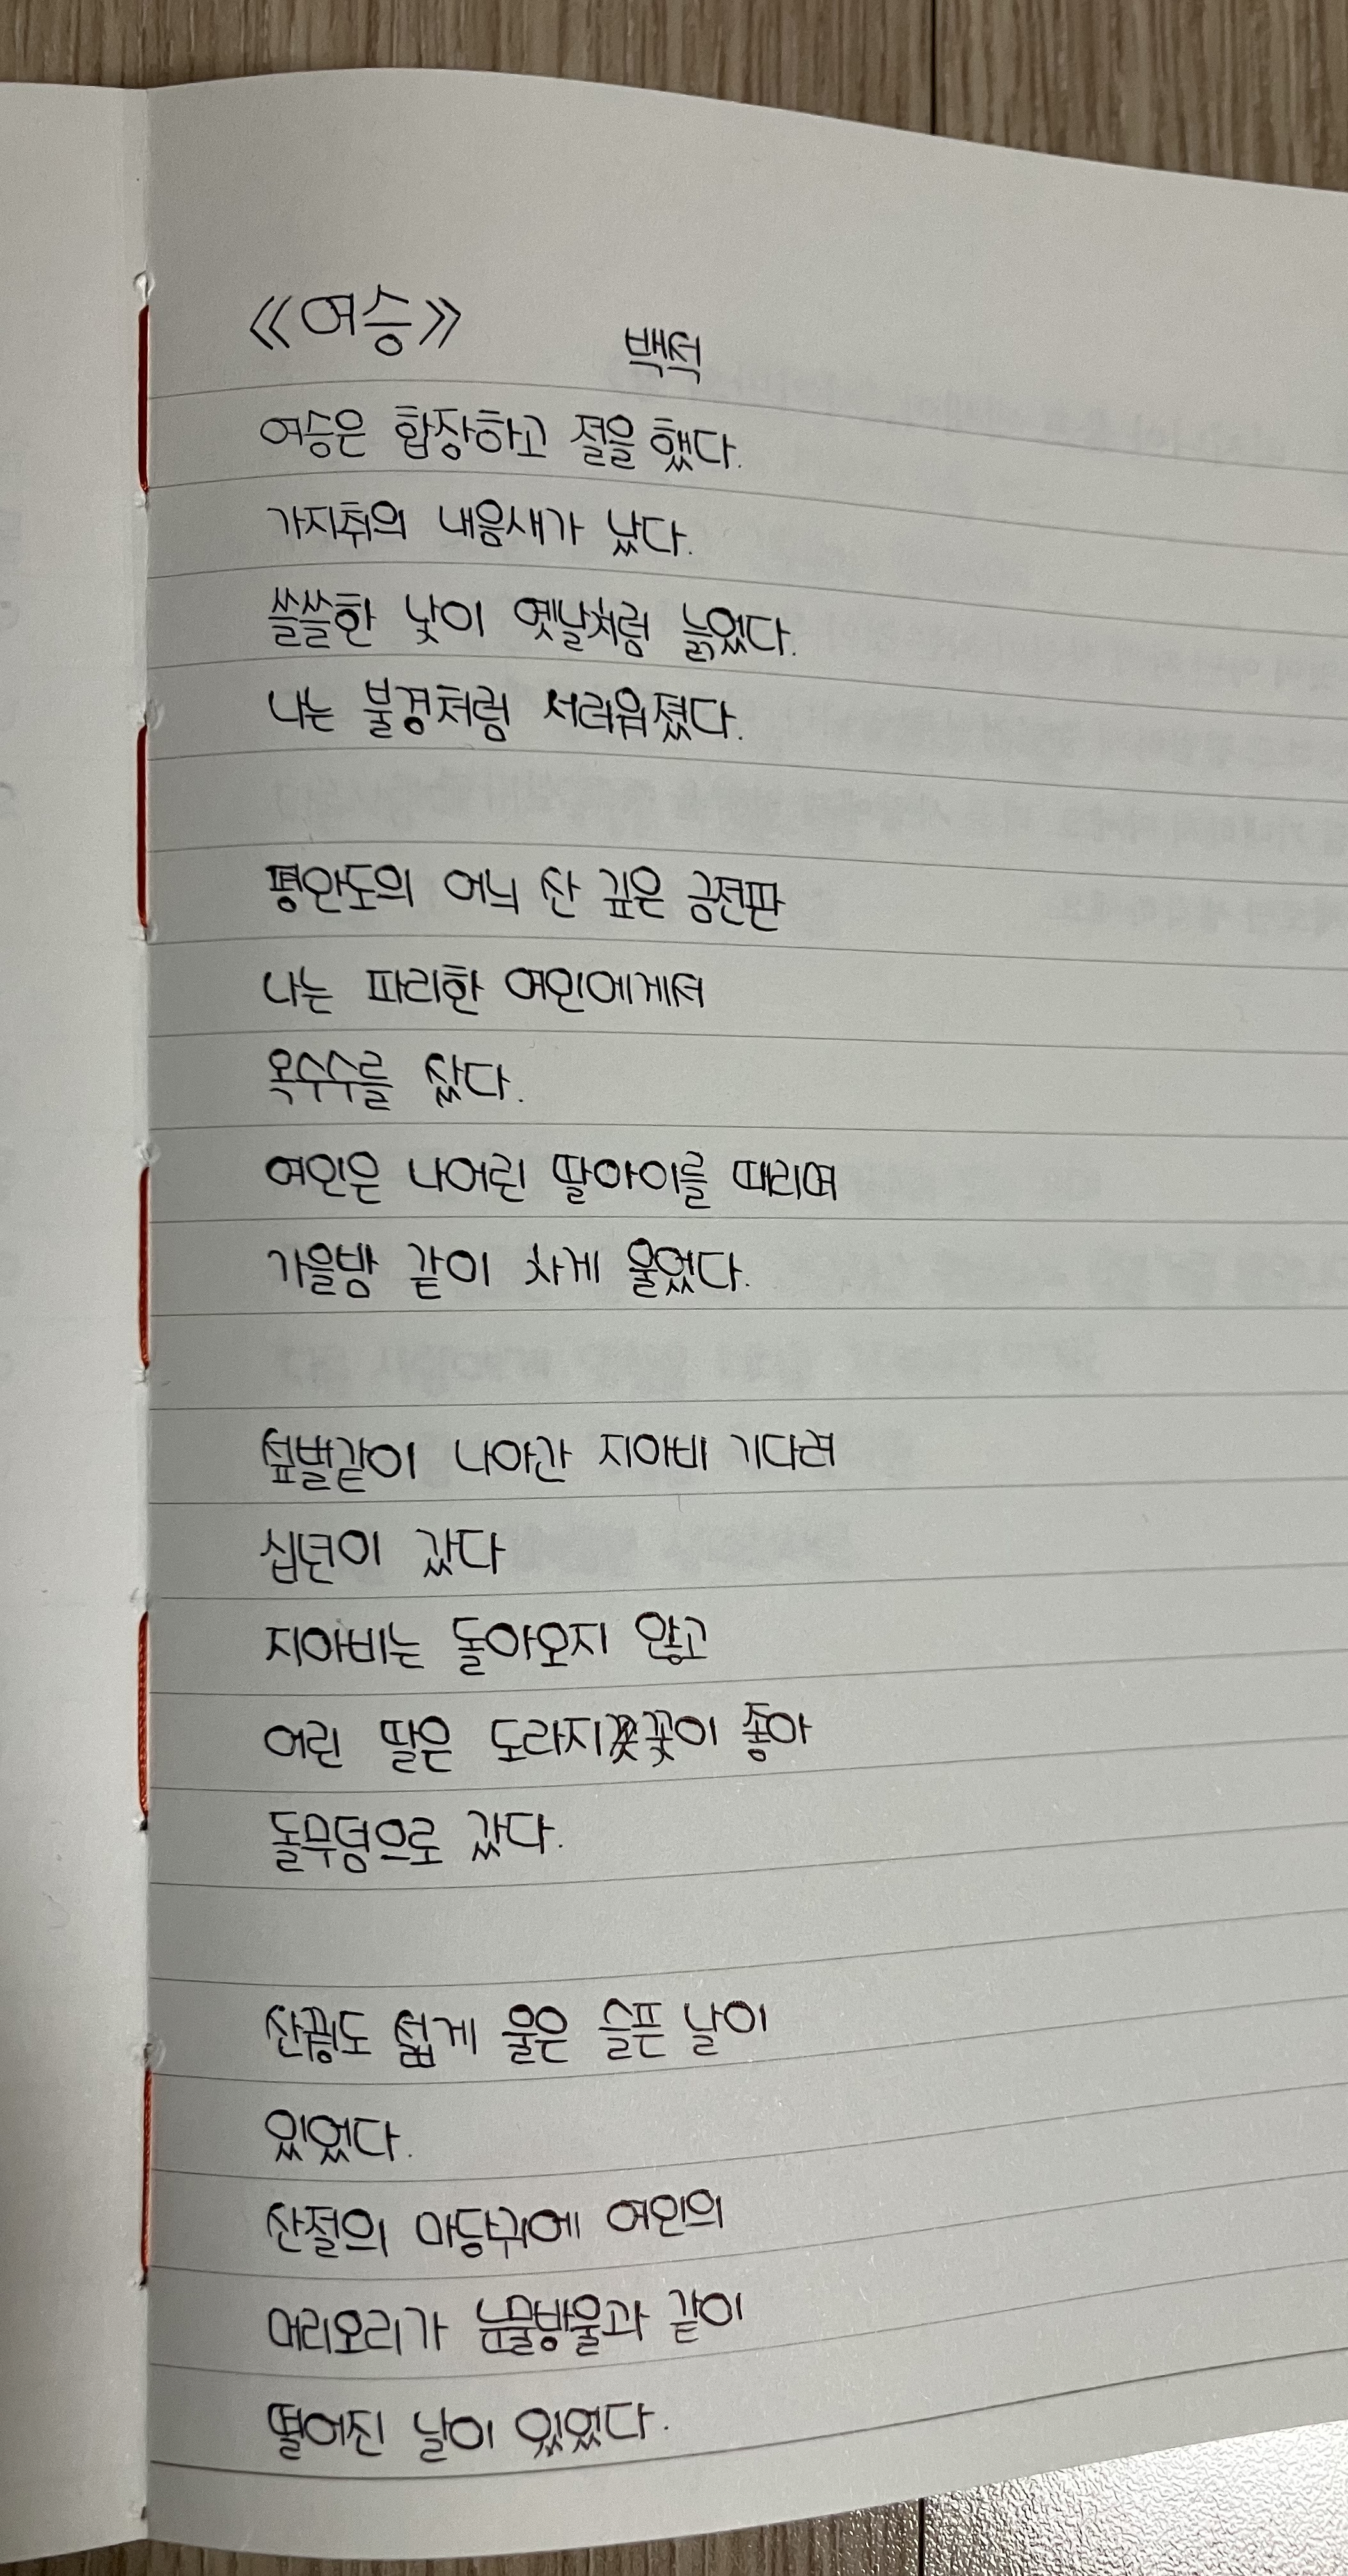 《여승》
백석
여승은 합장하고 절을 했다.
가지취의 내음새가 났다.
쓸쓸한 낯이 옛날처럼 늙었다.
나는 불경처럼 서러워졌다.
평안도의 어늬 산 깊은 금전판
나는 파리한 여인에게서
옥수수를 샀다.
여인은 나어린 딸아이를 때리며
가을밤 같이 차게 울었다.
섶벌같이 나아간 지아비 기다려
십년이 갔다
지아비는 돌아오지 않고
어린 딸은 도라지꽃이 좋아
돌무덤으로 갔다.
산꿩도 섧게 울은 슬픈 날이
있었다.
산절의 마당귀에 여인의
머리오리가 눈물방울과 같이
떨어진 날이 있었다.